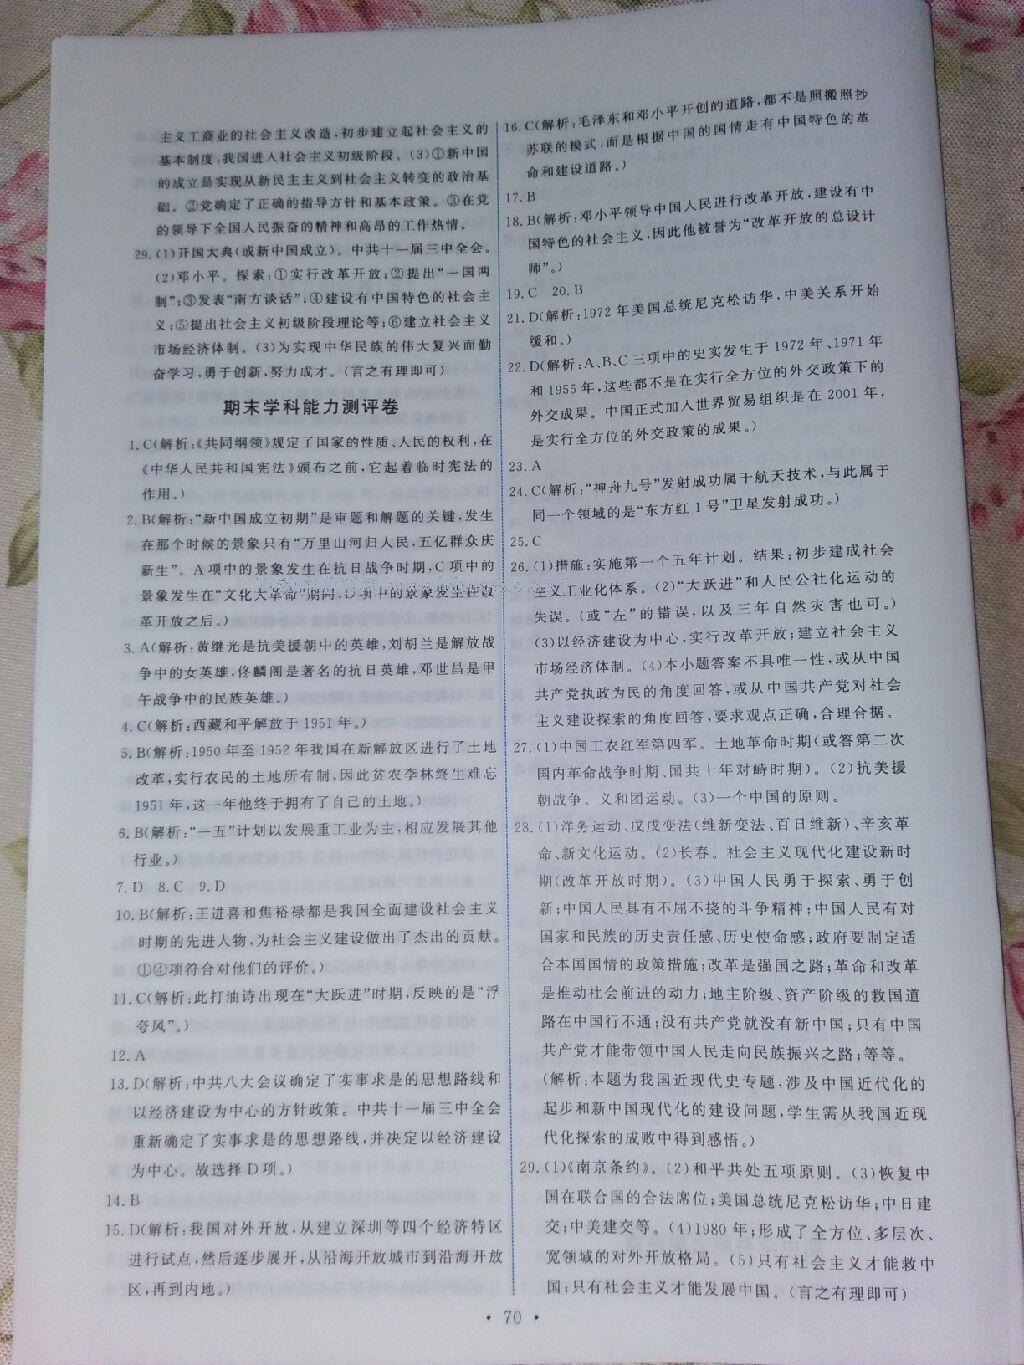 主义工商业的社会主义改造,初步建立起社会主义的
基本制度,我国进入社会主义初级阶段。(3)①新中国
的成立是实现从新民主主义到社会主义转变的政治基
础。②党确定了正确的指导方针和基本政策。③在党
的领导下全国人民振奋的精神和高昂的工作热情。
29.(1)开国大典(或新中国成立)。中共十一届三中全会。
(2)邓小平。探索:①实行改革开放;②提出“一国两
制”;③发表“南方谈话”;④建设有中国特色的社会主
义;⑤提出社会主义初级阶段理论等;⑥建立社会主义
市场经济体制。(3)为实现中华民族的伟大复兴而勤
奋学习,勇于创新,努力成才。(言之有理即可)
期末学科能力测评卷
1.C(解析:《共同纲领》规定了国家的性质、人民的权利,在
《中华人民共和国宪法》颁布之前,它起着临时宪法的
作用。)
2.B(解析:“新中国成立初期”是审题和解题的关键,发生
在那个时候的景象只有“万里山河归人民,五亿群众庆
新生”。A项中的景象发生在抗日战争时期,C项中的
景象发生在“文化大革命”期间,D项中的景象发生在改
革开放之后。)
3.A(解析:黄继光是抗美援朝中的英雄,刘胡兰是解放战
争中的女英雄,佟麟阁是著名的抗日英雄,邓世昌是甲
午战争中的民族英雄。)
4.C(解析:西藏和平解放于1951年。)
5.B(解析:1950年至1952年我国在新解放区进行了土地
改革,实行农民的土地所有制,因此贫农李林终生难忘
1951年,这一年他终于拥有了自己的土地。)
6.B(解析:“一五”计划以发展重工业为主,相应发展其他
行业。)
7.D 8.C 9.D
10.B(解析:王进喜和焦裕禄都是我国全面建设社会主义
时期的先进人物,为社会主义建设做出了杰出的贡献。
①④项符合对他们的评价。)
11.C(解析:此打油诗出现在“大跃进”时期,反映的是“浮
夸风”。)
12.A
13.D(解析:中共八大会议确定了实事求是的思想路线和
以经济建设为中心的方针政策。中共十一届三中全会
重新确定了实事求是的思想路线,并决定以经济建设
为中心。故选择D项。)
14.B
15.D(解析:我国对外开放,从建立深圳等四个经济特区
进行试点,然后逐步展开,从沿海开放城市到沿海开放
区,再到内地。)
16.C(解析:毛泽东和邓小平开创的道路,都不是照搬照抄
苏联的模式,而是根据中国的国情走有中国特色的革
命和建设道路。)
17.B
18.B(解析:邓小平领导中国人民进行改革开放,建设有中
国特色的社会主义,因此他被誉为“改革开放的总设计
师”。)
19.C 20.B
21.D(解析:1972年美国总统尼克松访华,中美关系开始
缓和。)
22.D(解析:A、B、C三项中的史实发生于1972年、1971年
和1955年,这些都不是在实行全方位的外交政策下的
外交成果。中国正式加入世界贸易组织是在2001年,
是实行全方位的外交政策的成果。)
23.A
24.C(解析:“神舟九号”发射成功属于航天技术,与此属于
同一个领域的是“东方红1号”卫星发射成功。)
25.C
26.(1)措施:实施第一个五年计划。结果:初步建成社会
主义工业化体系。(2)“大跃进”和人民公社化运动的
失误。(或“左”的错误,以及三年自然灾害也可。)
(3)以经济建设为中心,实行改革开放;建立社会主义
市场经济体制。(4)本小题答案不具唯一性,或从中国
共产党执政为民的角度回答,或从中国共产党对社会
主义建设探索的角度回答,要求观点正确,合理合据。
27.(1)中国工农红军第四军。土地革命时期(或答第二次
国内革命战争时期、国共十年对峙时期)。(2)抗美援
朝战争。义和团运动。(3)一个中国的原则。
28.(1)洋务运动、戊戌变法(维新变法、百日维新)、辛亥革
命、新文化运动。(2)长春。社会主义现代化建设新时
期(改革开放时期)。(3)中国人民勇于探索、勇于创
新;中国人民具有不屈不挠的斗争精神;中国人民有对
国家和民族的历史责任感、历史使命感;政府要制定适
合本国国情的政策措施;改革是强国之路;革命和改革
是推动社会前进的动力;地主阶级、资产阶级的救国道
路在中国行不通;没有共产党就没有新中国;只有中国
共产党才能带领中国人民走向民族振兴之路;等等。
(解析:本题为我国近现代史专题,涉及中国近代化的
起步和新中国现代化的建设问题,学生需从我国近现
代化探索的成败中得到感悟。)
29.(1)《南京条约》。(2)和平共处五项原则。(3)恢复中
国在联合国的合法席位;美国总统尼克松访华;中日建
交;中美建交等。(4)1980年;形成了全方位、多层次、
宽领域的对外开放格局。(5)只有社会主义才能救中
国;只有社会主义才能发展中国。(言之有理即可)
· 70 ·